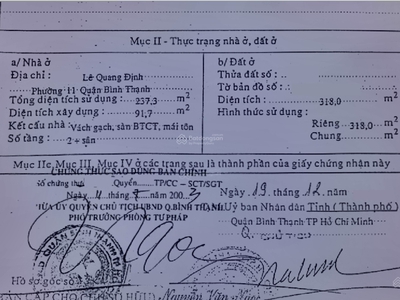 Mục II - Thực trạng nhà ở, đất ở
a/ Nhà ở
Địa chỉ : Lê Quang Định
Phường 11 Quận Bình Thạnh
Tổng diện tích sử dụng : 237,3 m2
Diện tích xây dựng : 91,7 m2
Kết cấu nhà : Vách gạch, sàn BTCT, mái tôn
Số tầng : 2 + sân
b/ Đất ở
Thửa đất số :
Tờ bản đồ số :
Diện tích : 318,0 m2
Hình thức sử dụng :
Riêng 318,0 m2
Chung m2
Mục IIc, Mục III, Mục IV ở các trang sau là thành phần của giấy chứng nhận này
CHỨNG THỰC SAO ĐÚNG BẢN CHÍNH
Số chứng thực Quyển TP/CC - SCT/SGT
Ngày 11 tháng năm 200
TUA ỦY QUYỀN CHỦ TỊCH UBND Q.BÌNH THẠNH
PHÓ TRƯỞNG PHÒNG TƯ PHÁP
Ngày 19 tháng 12 năm
Uỷ ban Nhân dân Tỉnh ( Thành phố )
Quận Bình Thạnh TP Hồ Chí Minh
Hồ sơ gốc số
Nguyễn Văn